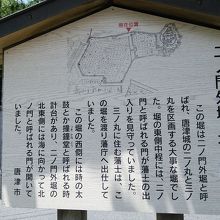 現在位置
この堀は二ノ門外堀と呼
ばれ、唐津城の二ノ丸と三ノ
丸を区画する大事な堀でし
た。堀の東側中程には、二ノ
門と呼ばれる門が藩士の出
入りを見守っていました。
三ノ丸に住む藩士は、こ
の堀を渡り藩庁へ出仕して
いました。
この堀の西側には時の太
鼓とか撞鐘堂と呼ばれる時
計台があり、二ノ門外堀の
北東側には海に向かって北
ノ門と呼ばれる門がありま
した。
唐津市